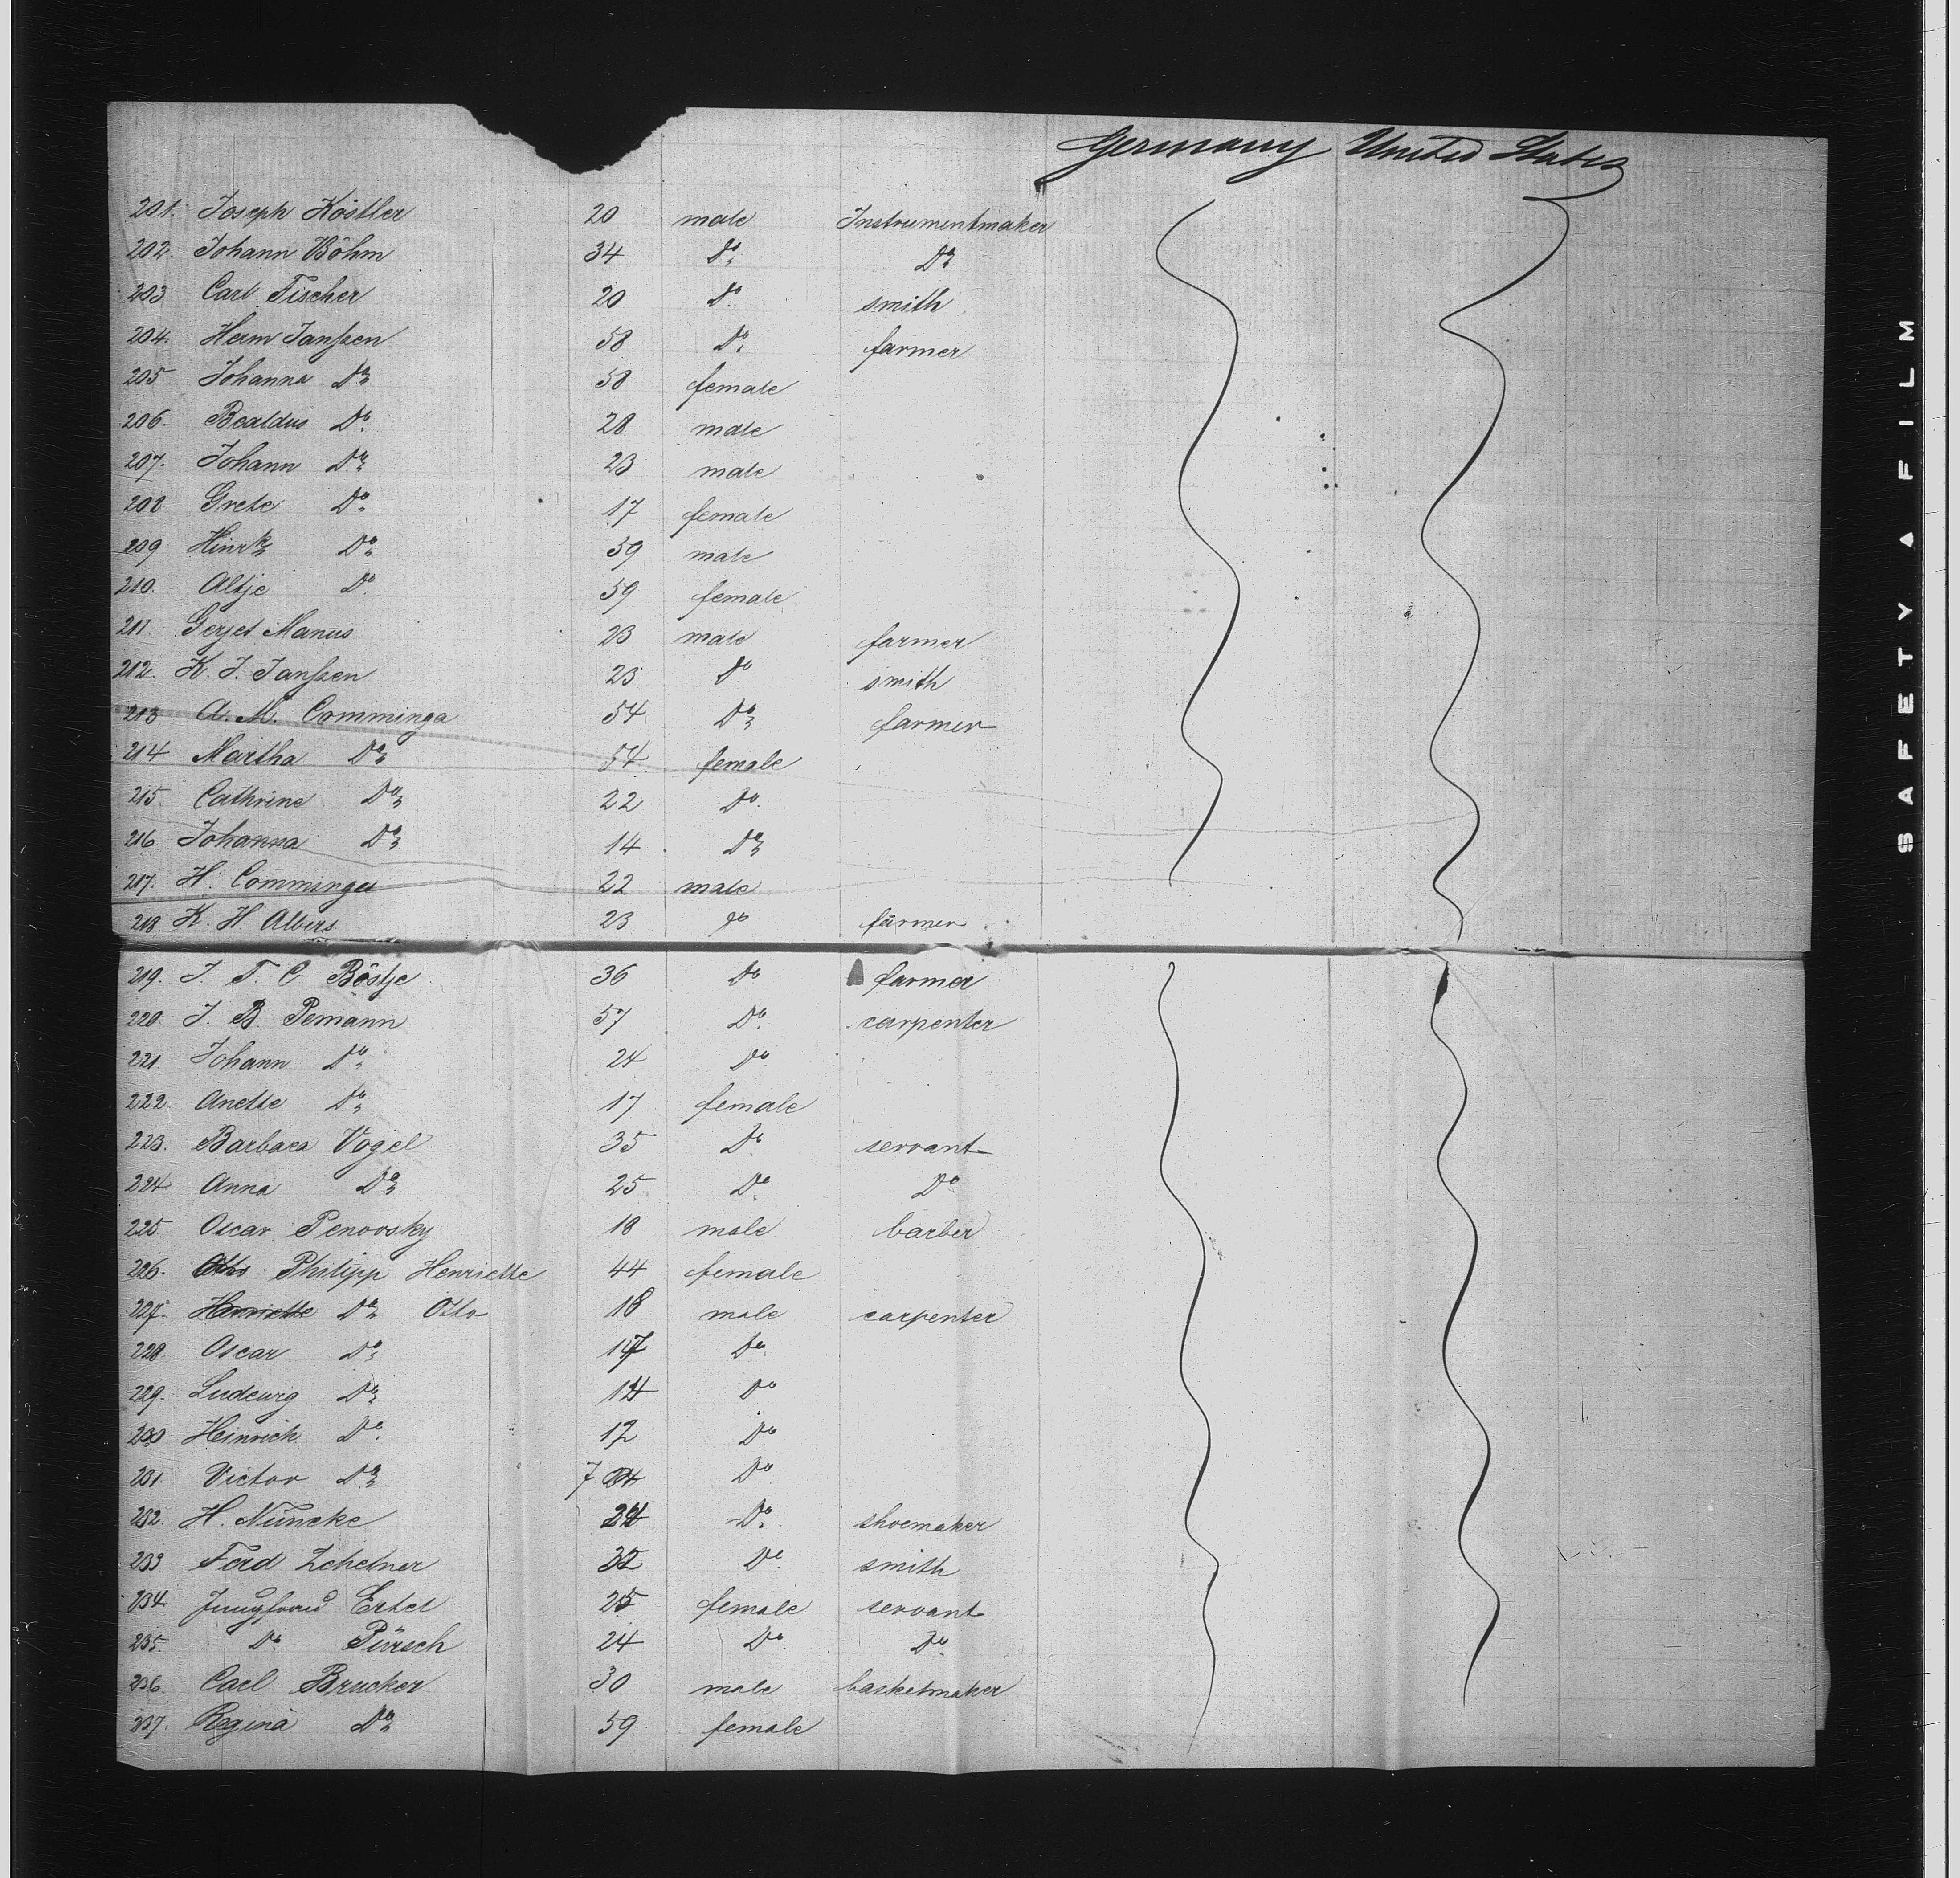 Germany United States
201. Joseph Köstler 20 male Instrumentmaker
202. Johann Böhm 34 Do Do
203 Carl Fischer 20 Do smith
204. Herm Janssen 58 Do farmer
205 Johanna Do 58 female
206. Bealdus Do 28 male
207. Johann Do 23 male
208 Grete Do 17 female
209 Hinrk Do 59 male
210. Altje Do 59 female
211 Gerjet Manus 23 male farmer
212. K. J. Janssen 23 Do smith
213 A. M. Comminga 54 Do farmer
214 Martha Do 54 female
215 Cathrine Do 22 Do
216 Johanna Do 14 Do
217. H. Comminga 22 male
218 K. H Albers 23 Do farmer
219. J. F. C Böstje 36 Do farmer
220. J. B. Pemann 57 Do carpenter
221. Johann Do 24 Do
222. Anette Do 17 female
223. Barbara Vogel 35 Do servant
224 Anna Do 25 Do Do
225 Oscar Penovsky 18 male barber
226. Otto Philipp Henriette 44 female
227. Henriette Do Otto 18 male carpenter
228. Oscar Do 17 Do
229. Ludewg Do 14 Do
230 Heinrich Do 12 Do
231. Victor Do 7 Do
232. H. Nüncke 24 Do shoemaker
233 Ferd Zehetner 32 Do smith
234 Jungfrau Ertel 25 female servant
235. Do Pürsch 24 Do Do
236 Carl Brucker 30 male basketmaker
237. Regina Do 59 female
SAFETY A FILM